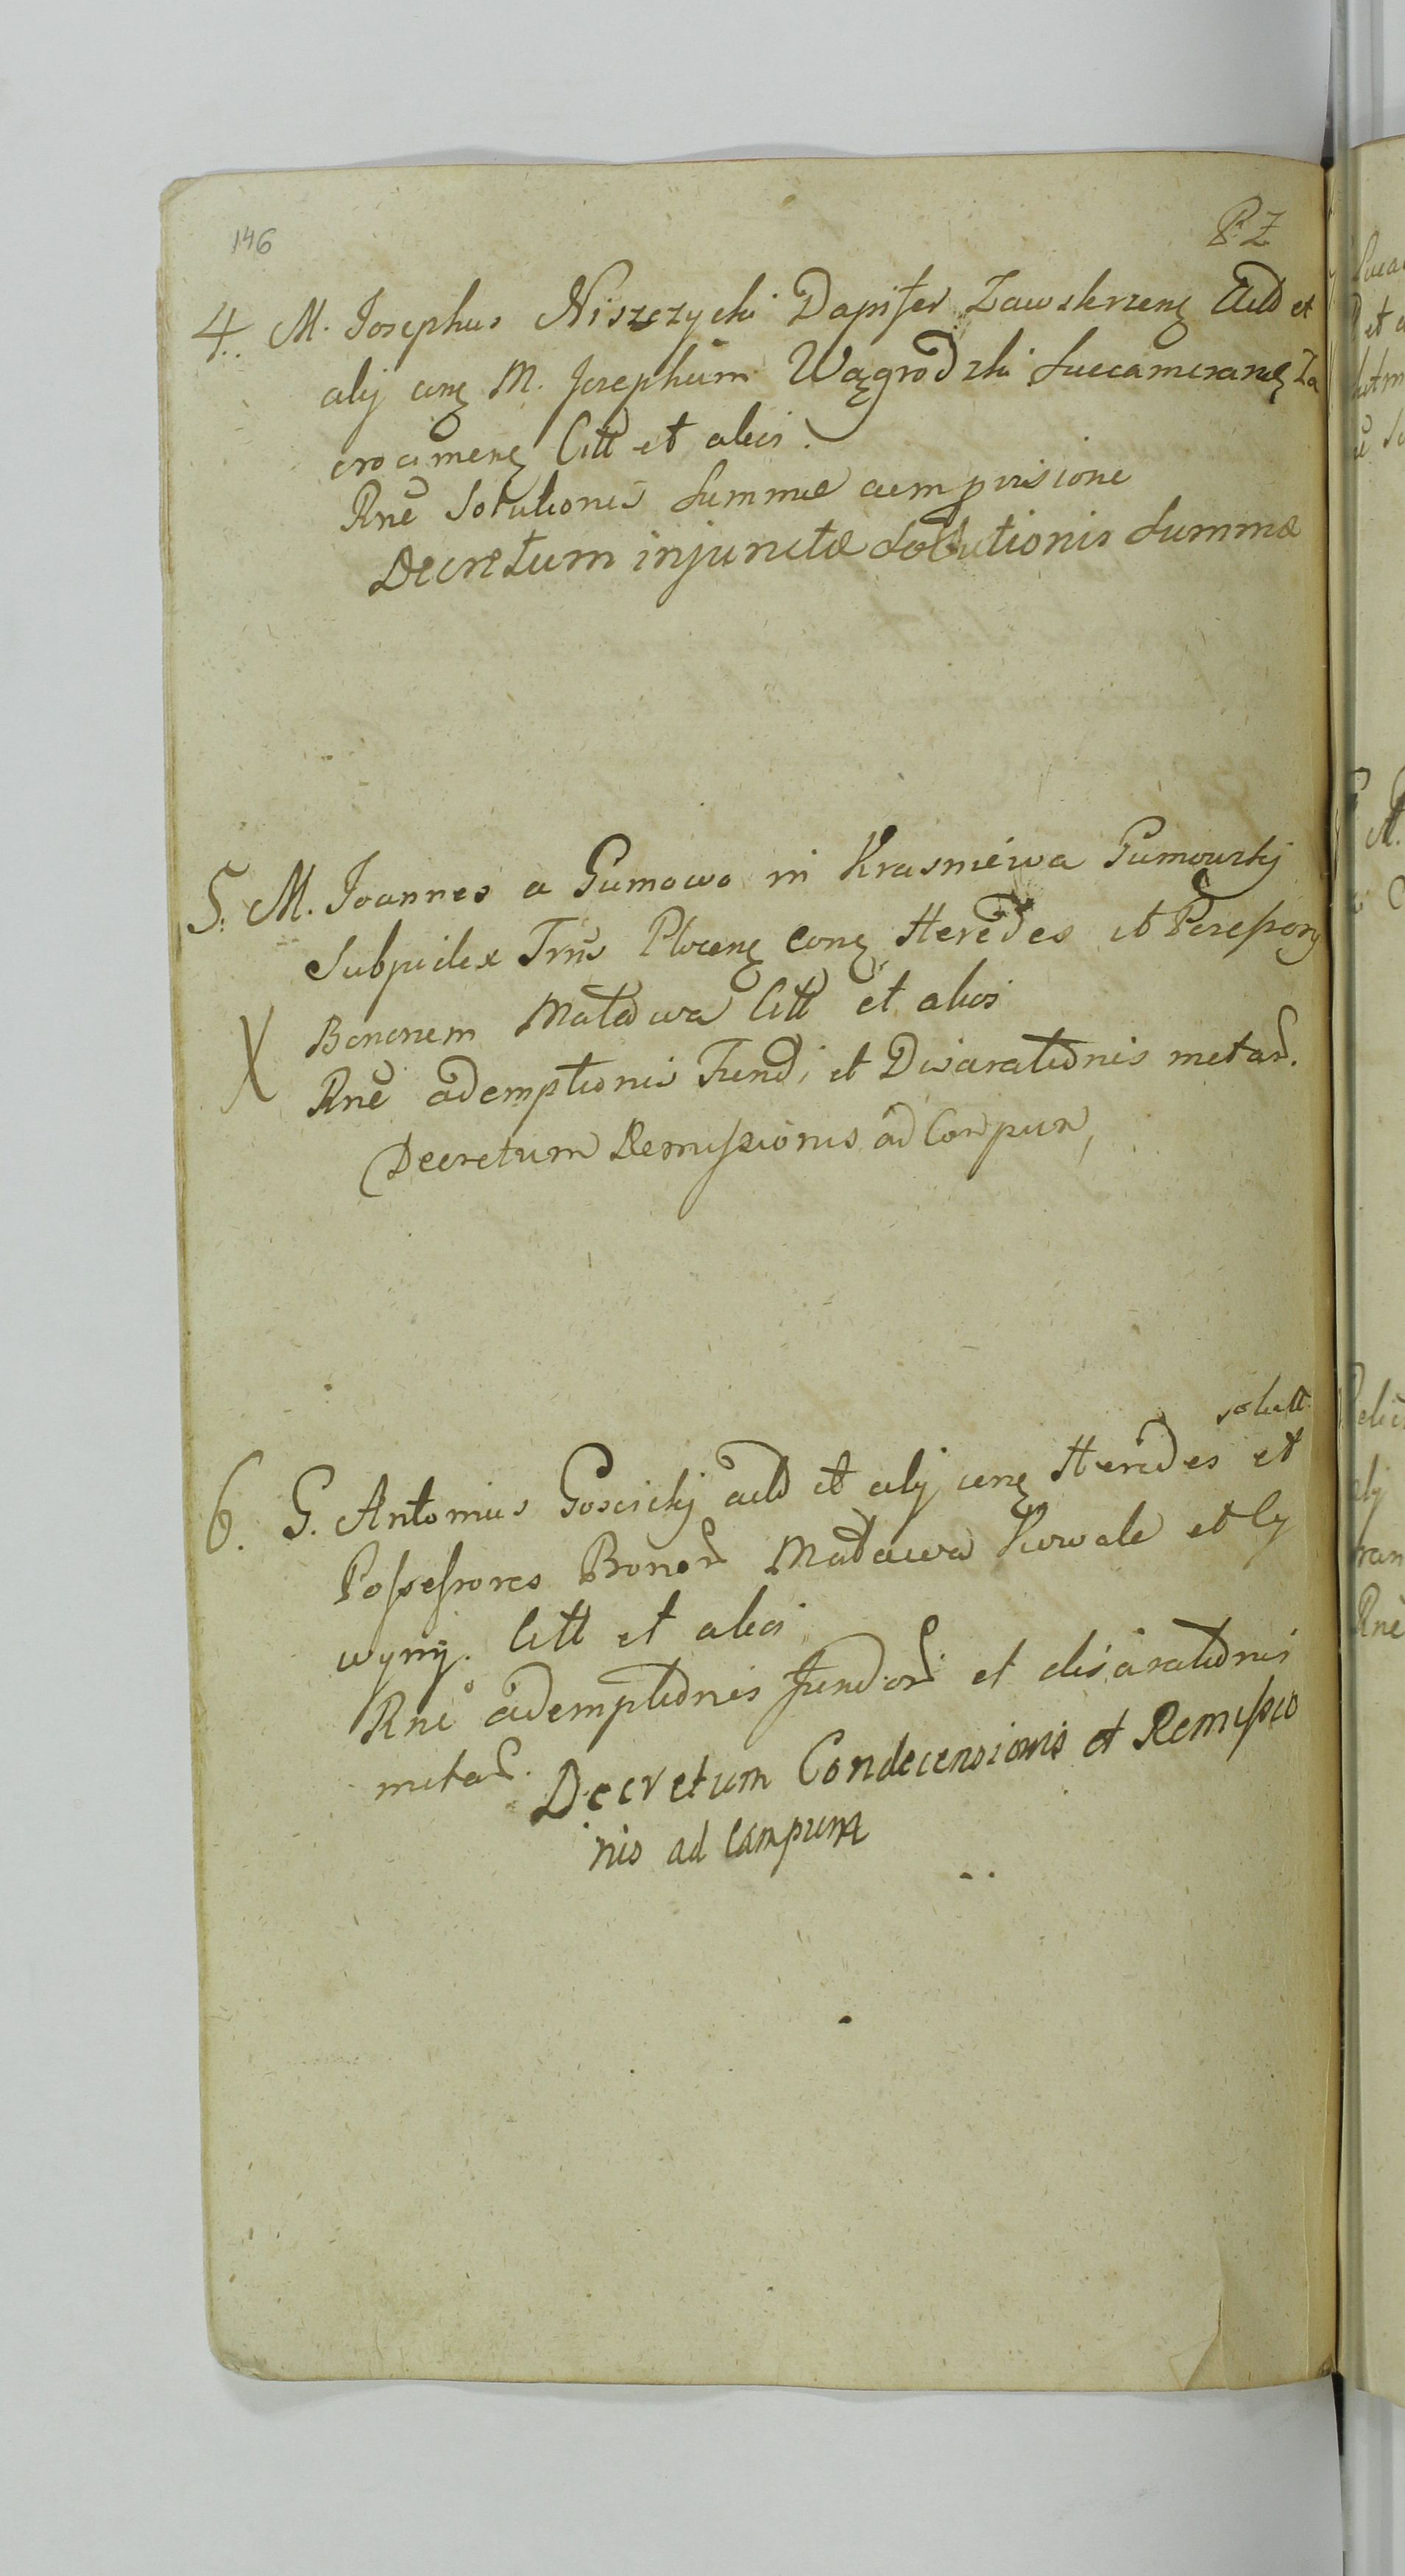 146
P. Z.
4. M. Josephus Niszczycki Dapifer Zawskrzenę Actd et
alij conę M. Josephum Wągrodzki Succameranę Za
crocimenę Citt et alios
Rnē Solutionis Summæ cum provisione
Decretum injunctæ Solutionis Summæ
5. M. Joannes a Gumowo in Krasniewa Gumowskij
Subjudex Trris Plocenę conę Heredes et
X Bonorum Matowa Citt et alios
Rnē ademptionis Fundi et Disarationis metar.
Decretum Remissionis ad
solutt.
6. G. Antonius Goscickij actd et alij conę Heredes et
Possessores Bonor Kowale et Cy
wyny. Citt et alios
Rnē ademptionis fundor et disarationis
metar. Decretum Condecensionis et Remissio
nis ad Campum